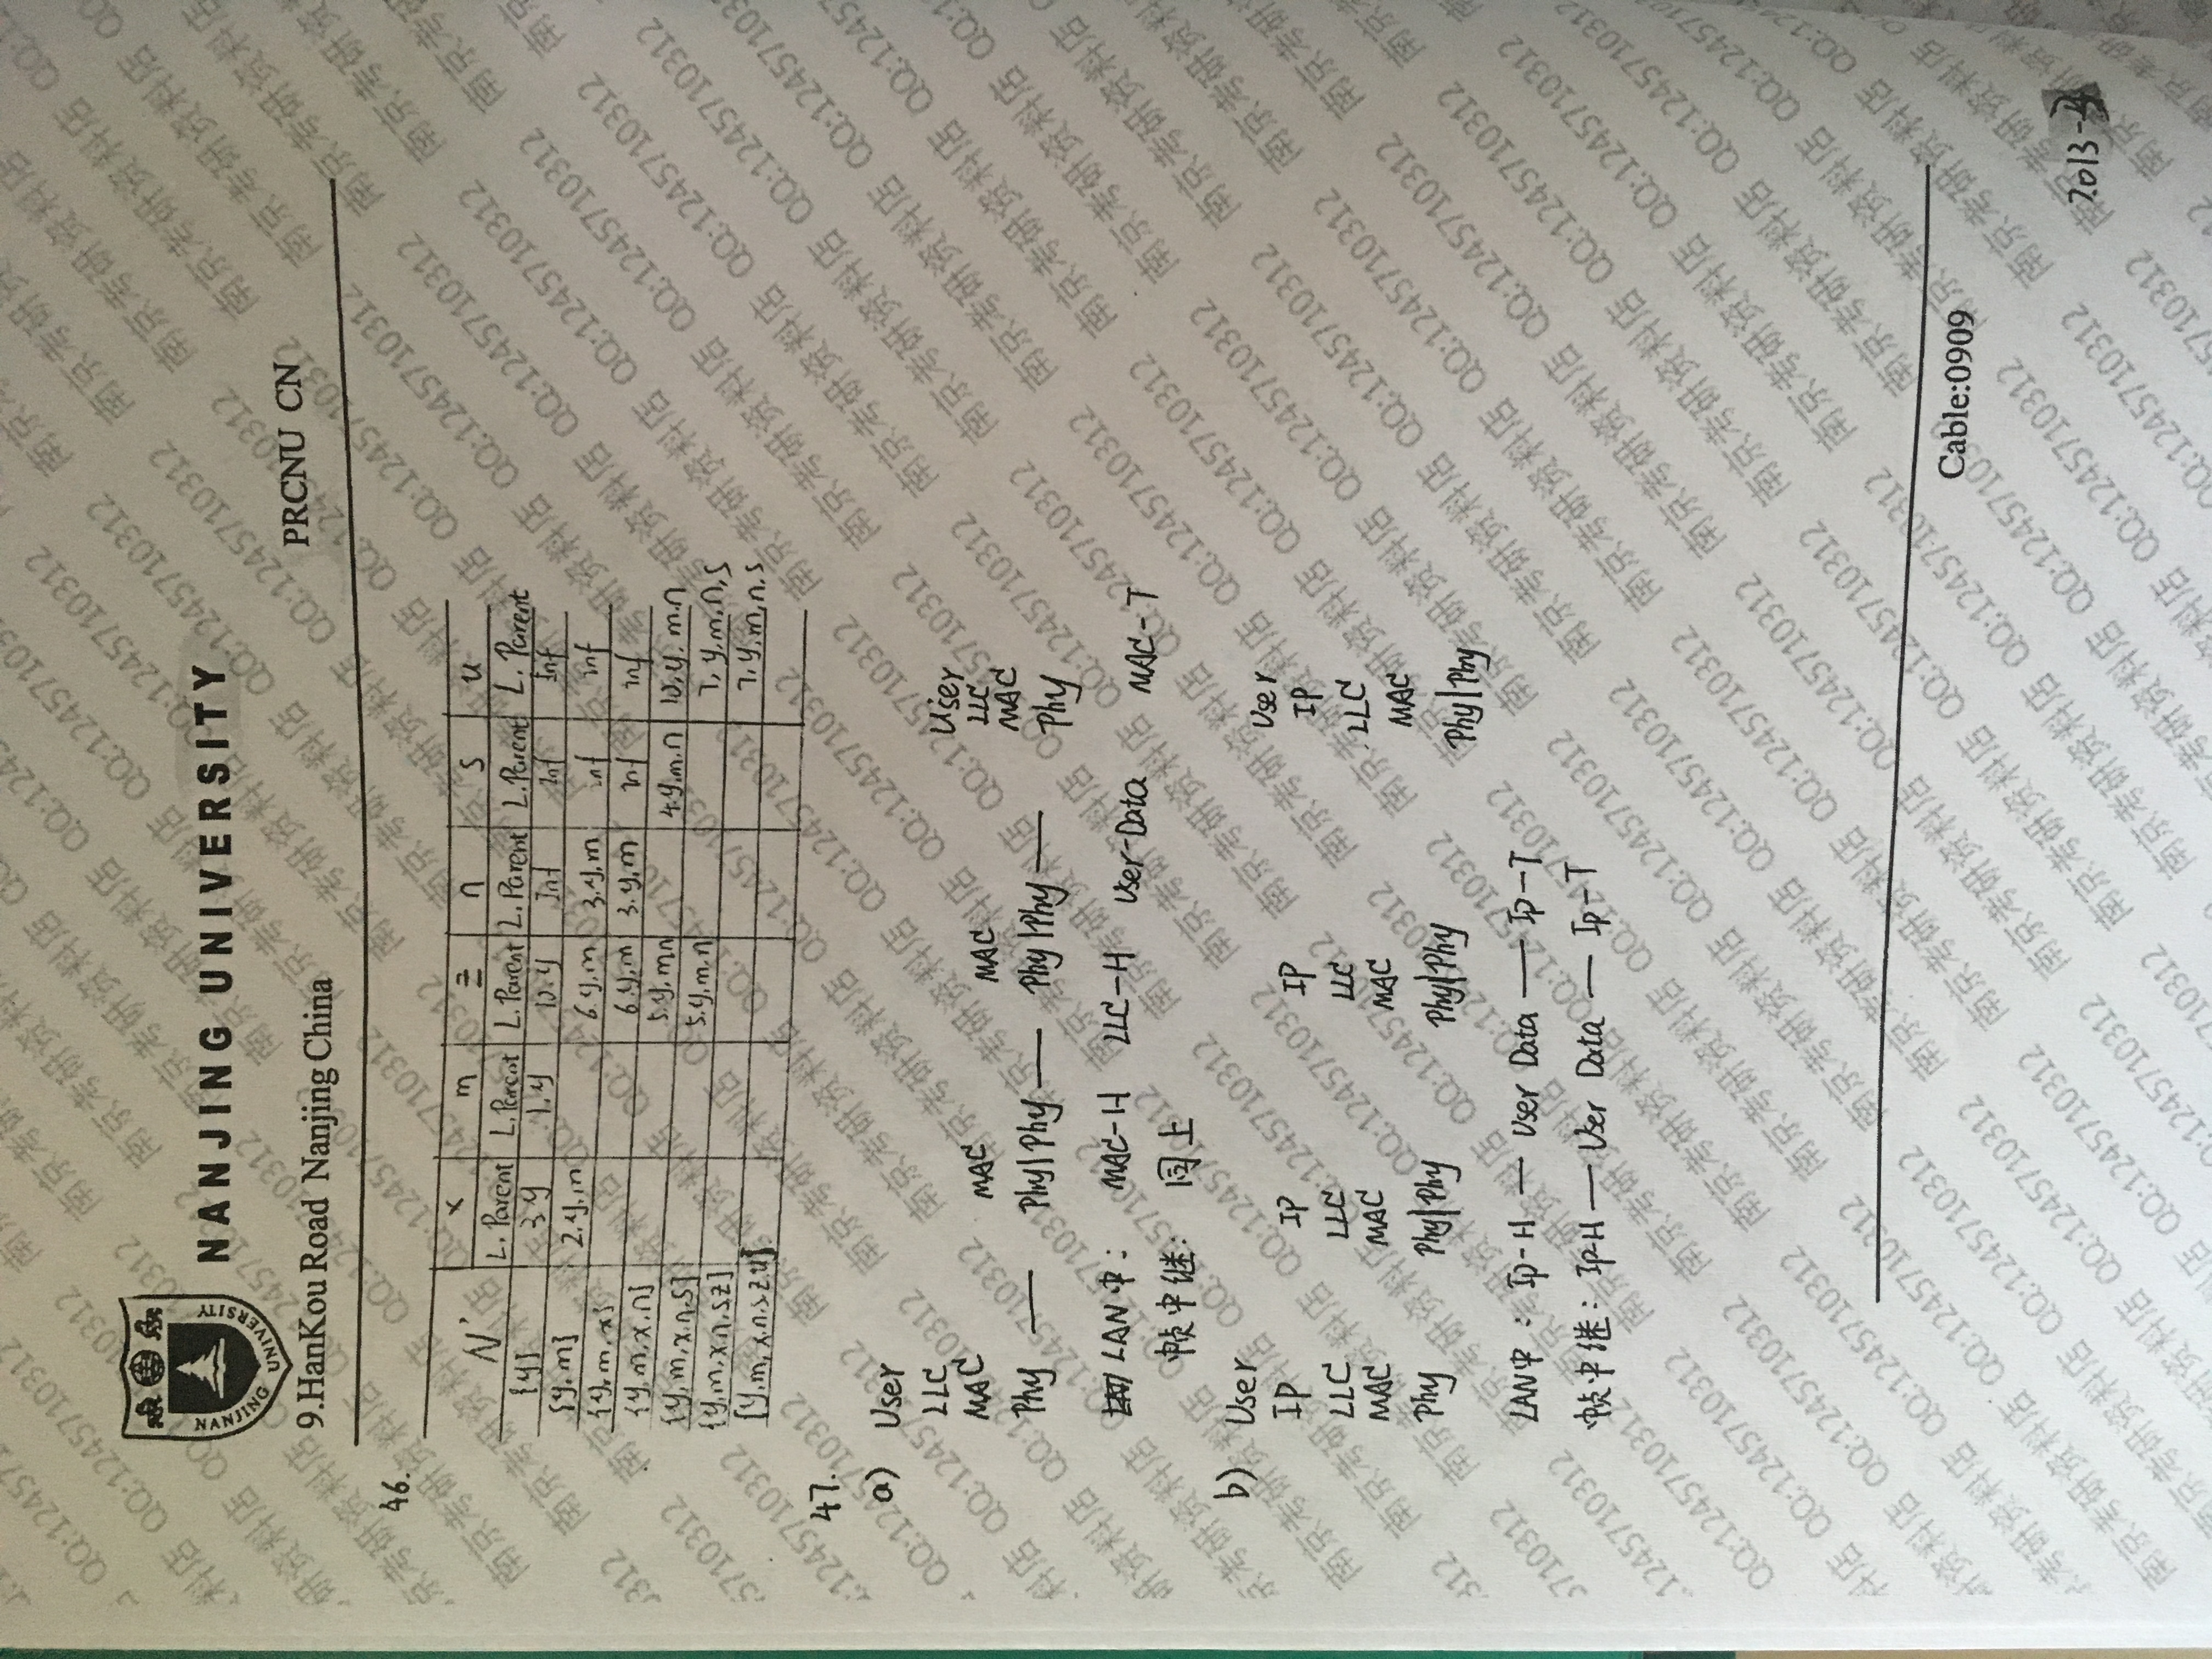 NANJING UNIVERSITY
NANJING UNIVERSITY
9.HanKou Road Nanjing China
PRCNU CN
46.
N' x m z n s u
L. Parent L. Parent L. Parent L. Parent L. Parent L. Parent
{y} 3.y 1.y 10.y Inf Inf Inf
{y.m} 2.y.m 6.y.m 3.y.m inf inf
{y.m.x} 6.y.m 3.y.m inf inf
{y.m.x.n} 5.y.mn 4.y.m.n 10.y.m.n
{y.m.x.n.s} 5.y.m.n 7,y.m.n,s
{y.m.x.n.s.z} 7.y.m.n.s
{y.m.x.n.s.z.u}
47.
a) User
LLC User
MAC MAC MAC LLC
MAC
Phy — Phy|Phy — Phy|Phy — Phy
LAN中: MAC-H LLC-H User-Data MAC-T
帧中继: 同上
b) User User
IP IP IP IP
LLC LLC LLC LLC
MAC MAC MAC MAC
Phy Phy|Phy Phy|Phy Phy|Phy
LAN中: Ip-H — User Data — Ip-T
帧中继: Ip-H — User Data — Ip-T
Cable:0909
南京考研资料店 QQ:1245710312